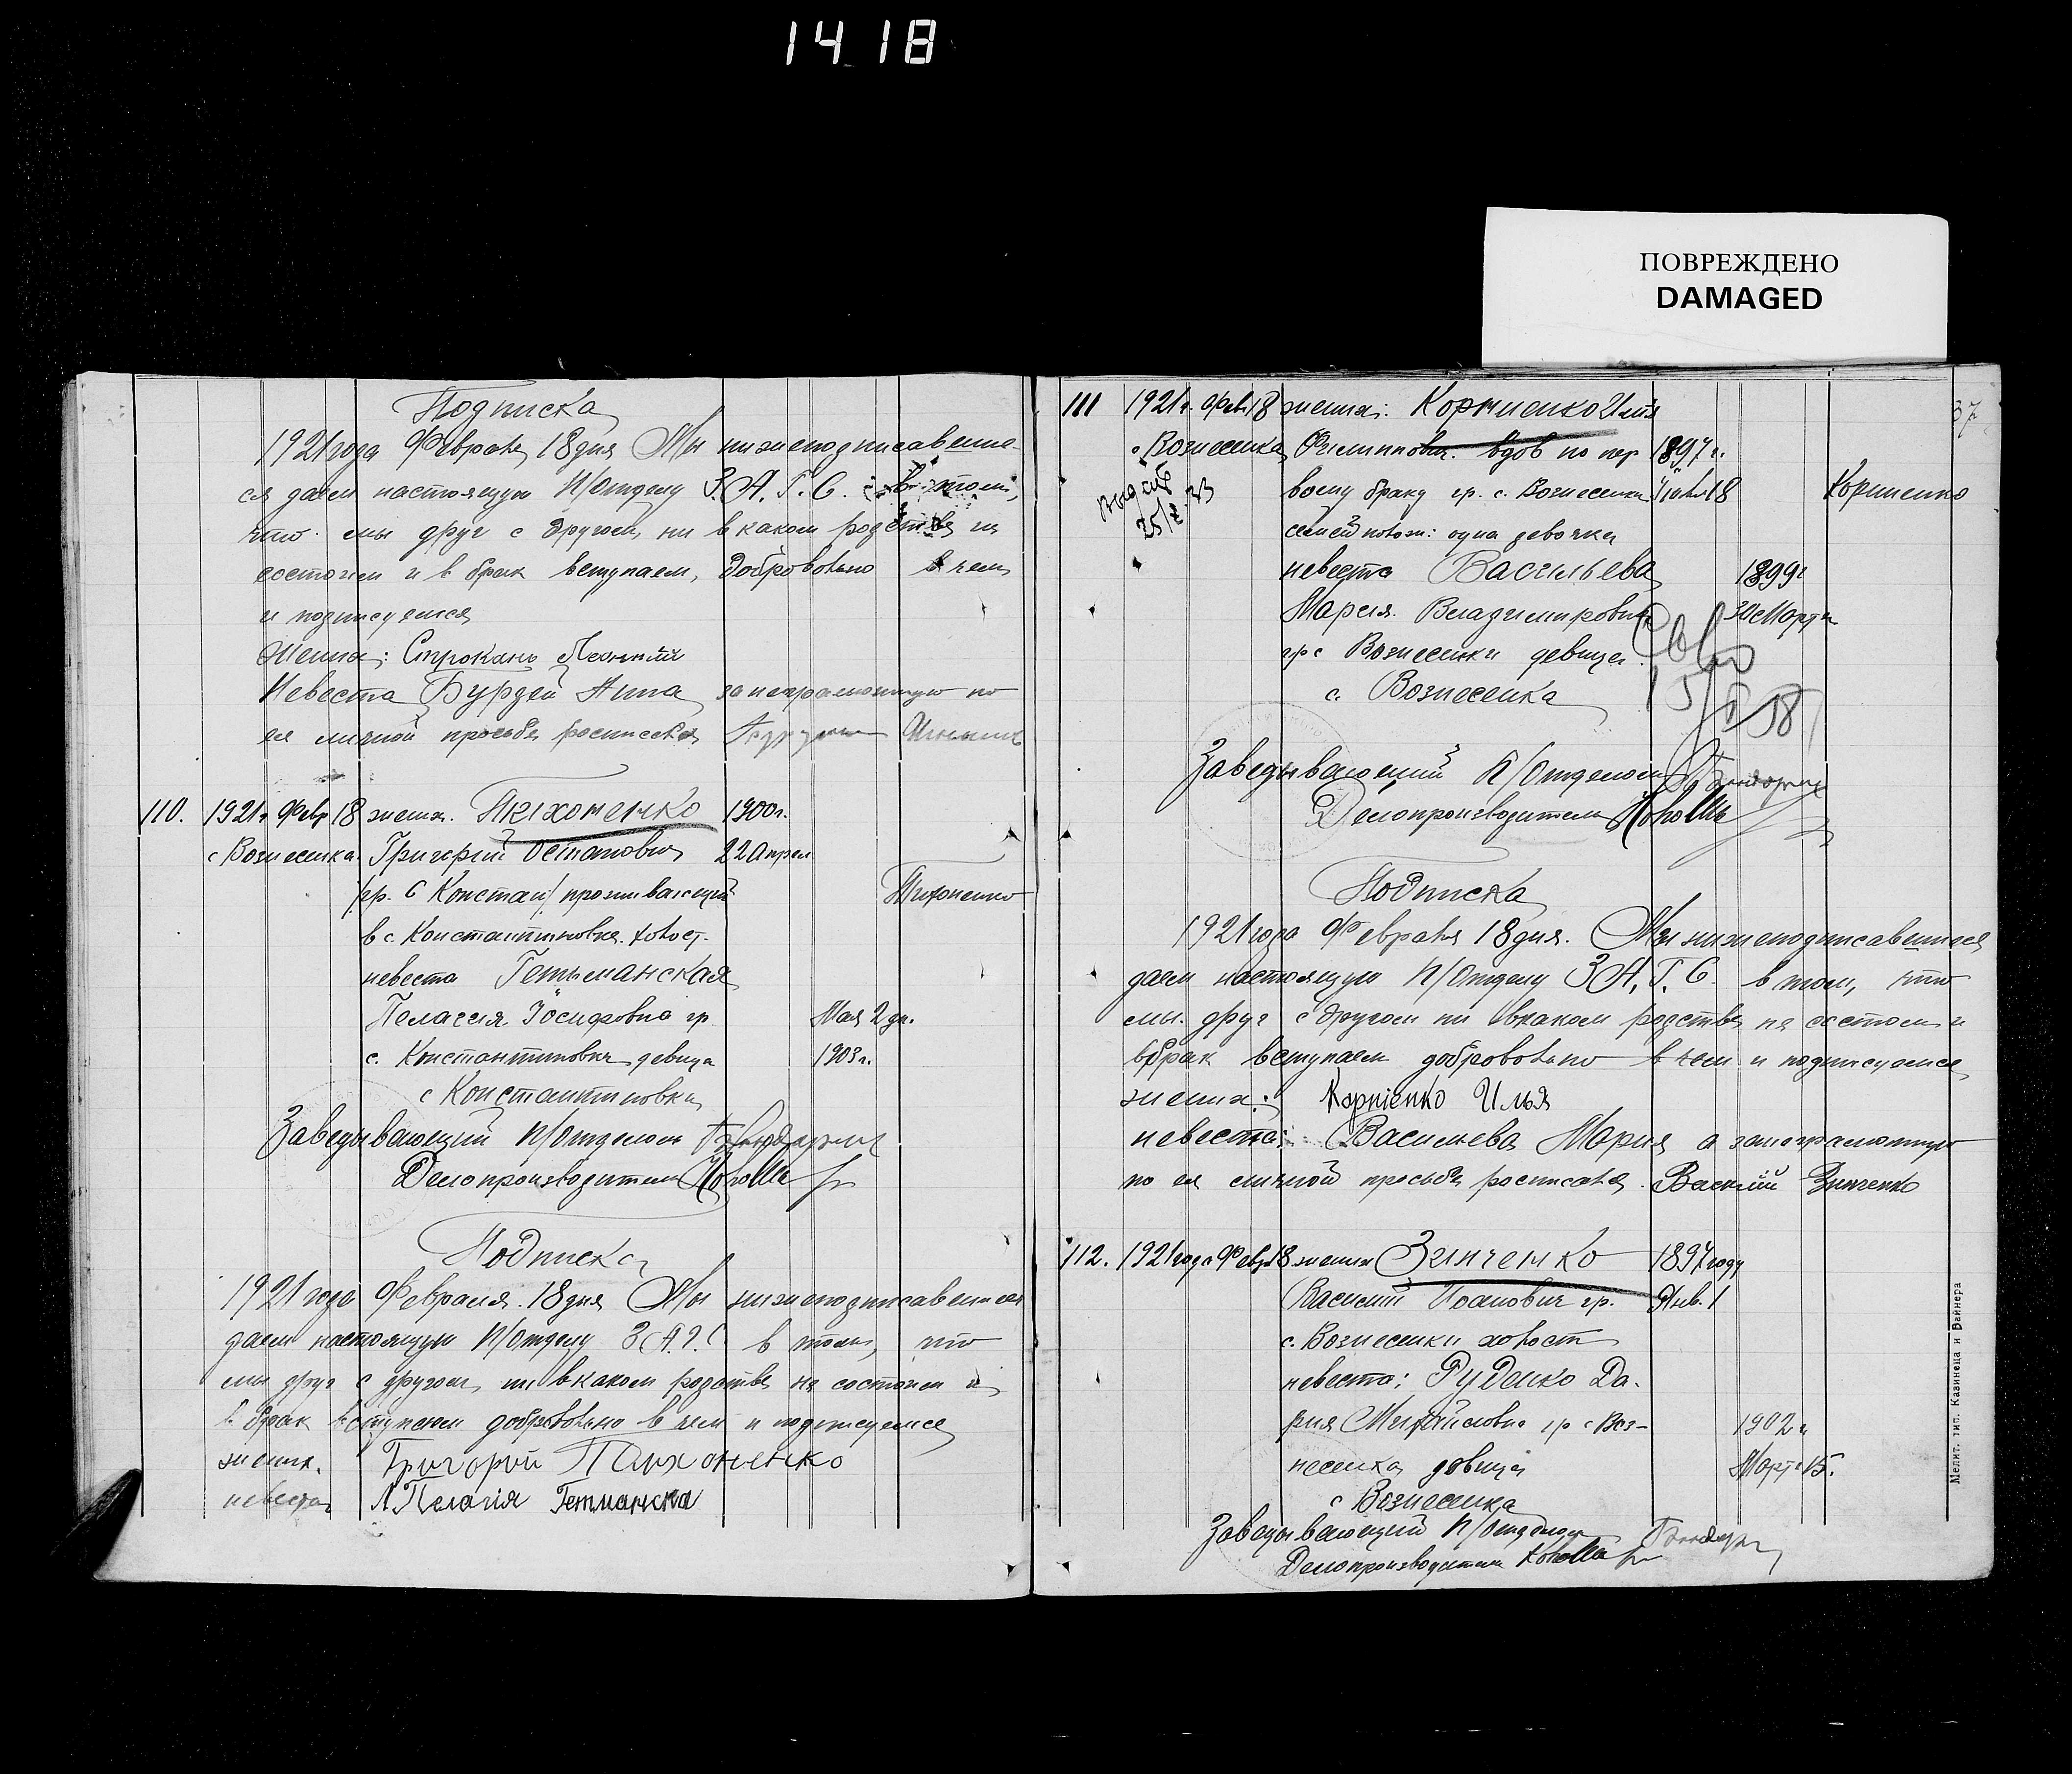 14 18
ПОВРЕЖДЕНО
DAMAGED
Подписка
1921 года Февраля 18 дня Мы нижеподписавшие-
ся даем настоящую П/Отделу З.А.Г.С. в том,
что мы друг с другом, ни в каком родстве не
состоим и в брак вступаем, добровольно в чем
и подписуемся
Жених: Строкань
Невеста Бурдей Анна за неграмотную по
ее личной просьбе росписался
110. 1921 г Февр 18 жених. Тихоненко 1900 г.
с Вознесенка Григорий Остапович 22 Апрел
/гр. с Констан/ проживающий Тихоненко
в с Константиновке. холост.
невеста Гетьманская
Пелагия Іосифовна гр Мая 2 дн.
с. Константиновки девица 1903 г.
с Константиновки
Заведывающий П/Отделом
Делопроизводитель
Подписка
1921 года Февраля 18 дня Мы нижеподписавшиеся
даем настоящую П/Отделу З.А.Г.С в том, что
мы друг с другом, ни в каком родстве не состоим и
в брак вступаем добровольно в чем и подписуемся
жених. Григорий
невеста Пелагія Гетманска
37
111 1921 г. Фев. 18 жених: Корниенко Илья
с Вознесенка Филиппович. вдов по пер 1897 г.
вому браку гр. с. Вознесенки Июля 18 Корниенко
семей полож: одна девочка
невеста Васильева 1899 г
Мария Владимировна 30 Марта
гр с Вознесенки девица
с. Вознесенка
Заведывающий П/Отделом
Делопроизводитель
Подписка
1921 года Февраля 18 дня. Мы нижеподписавшиеся
даем настоящую П/Отделу З.А.Г.С. в том, что
мы друг с другом ни в каком родстве не состоим и
в брак вступаем добровольно в чем и подписуемся
жених: Карніенко Илья
невеста: Васильева Мария а за неграмотную
по ея личной просьбе росписался Василий Зинченко
112. 1921 года Февр 18 жених Зинченко 1897 году
Василий Иванович гр. Янв. 1
с. Вознесенки холост
невеста: Руденко Да-
рия Михайловна гр с Воз- 1902 г
несенка девица Март 15.
с Вознесенка
Заведывающий П/Отделом
Делопроизводитель
Мелит. тип. Казинеца и Вайнера